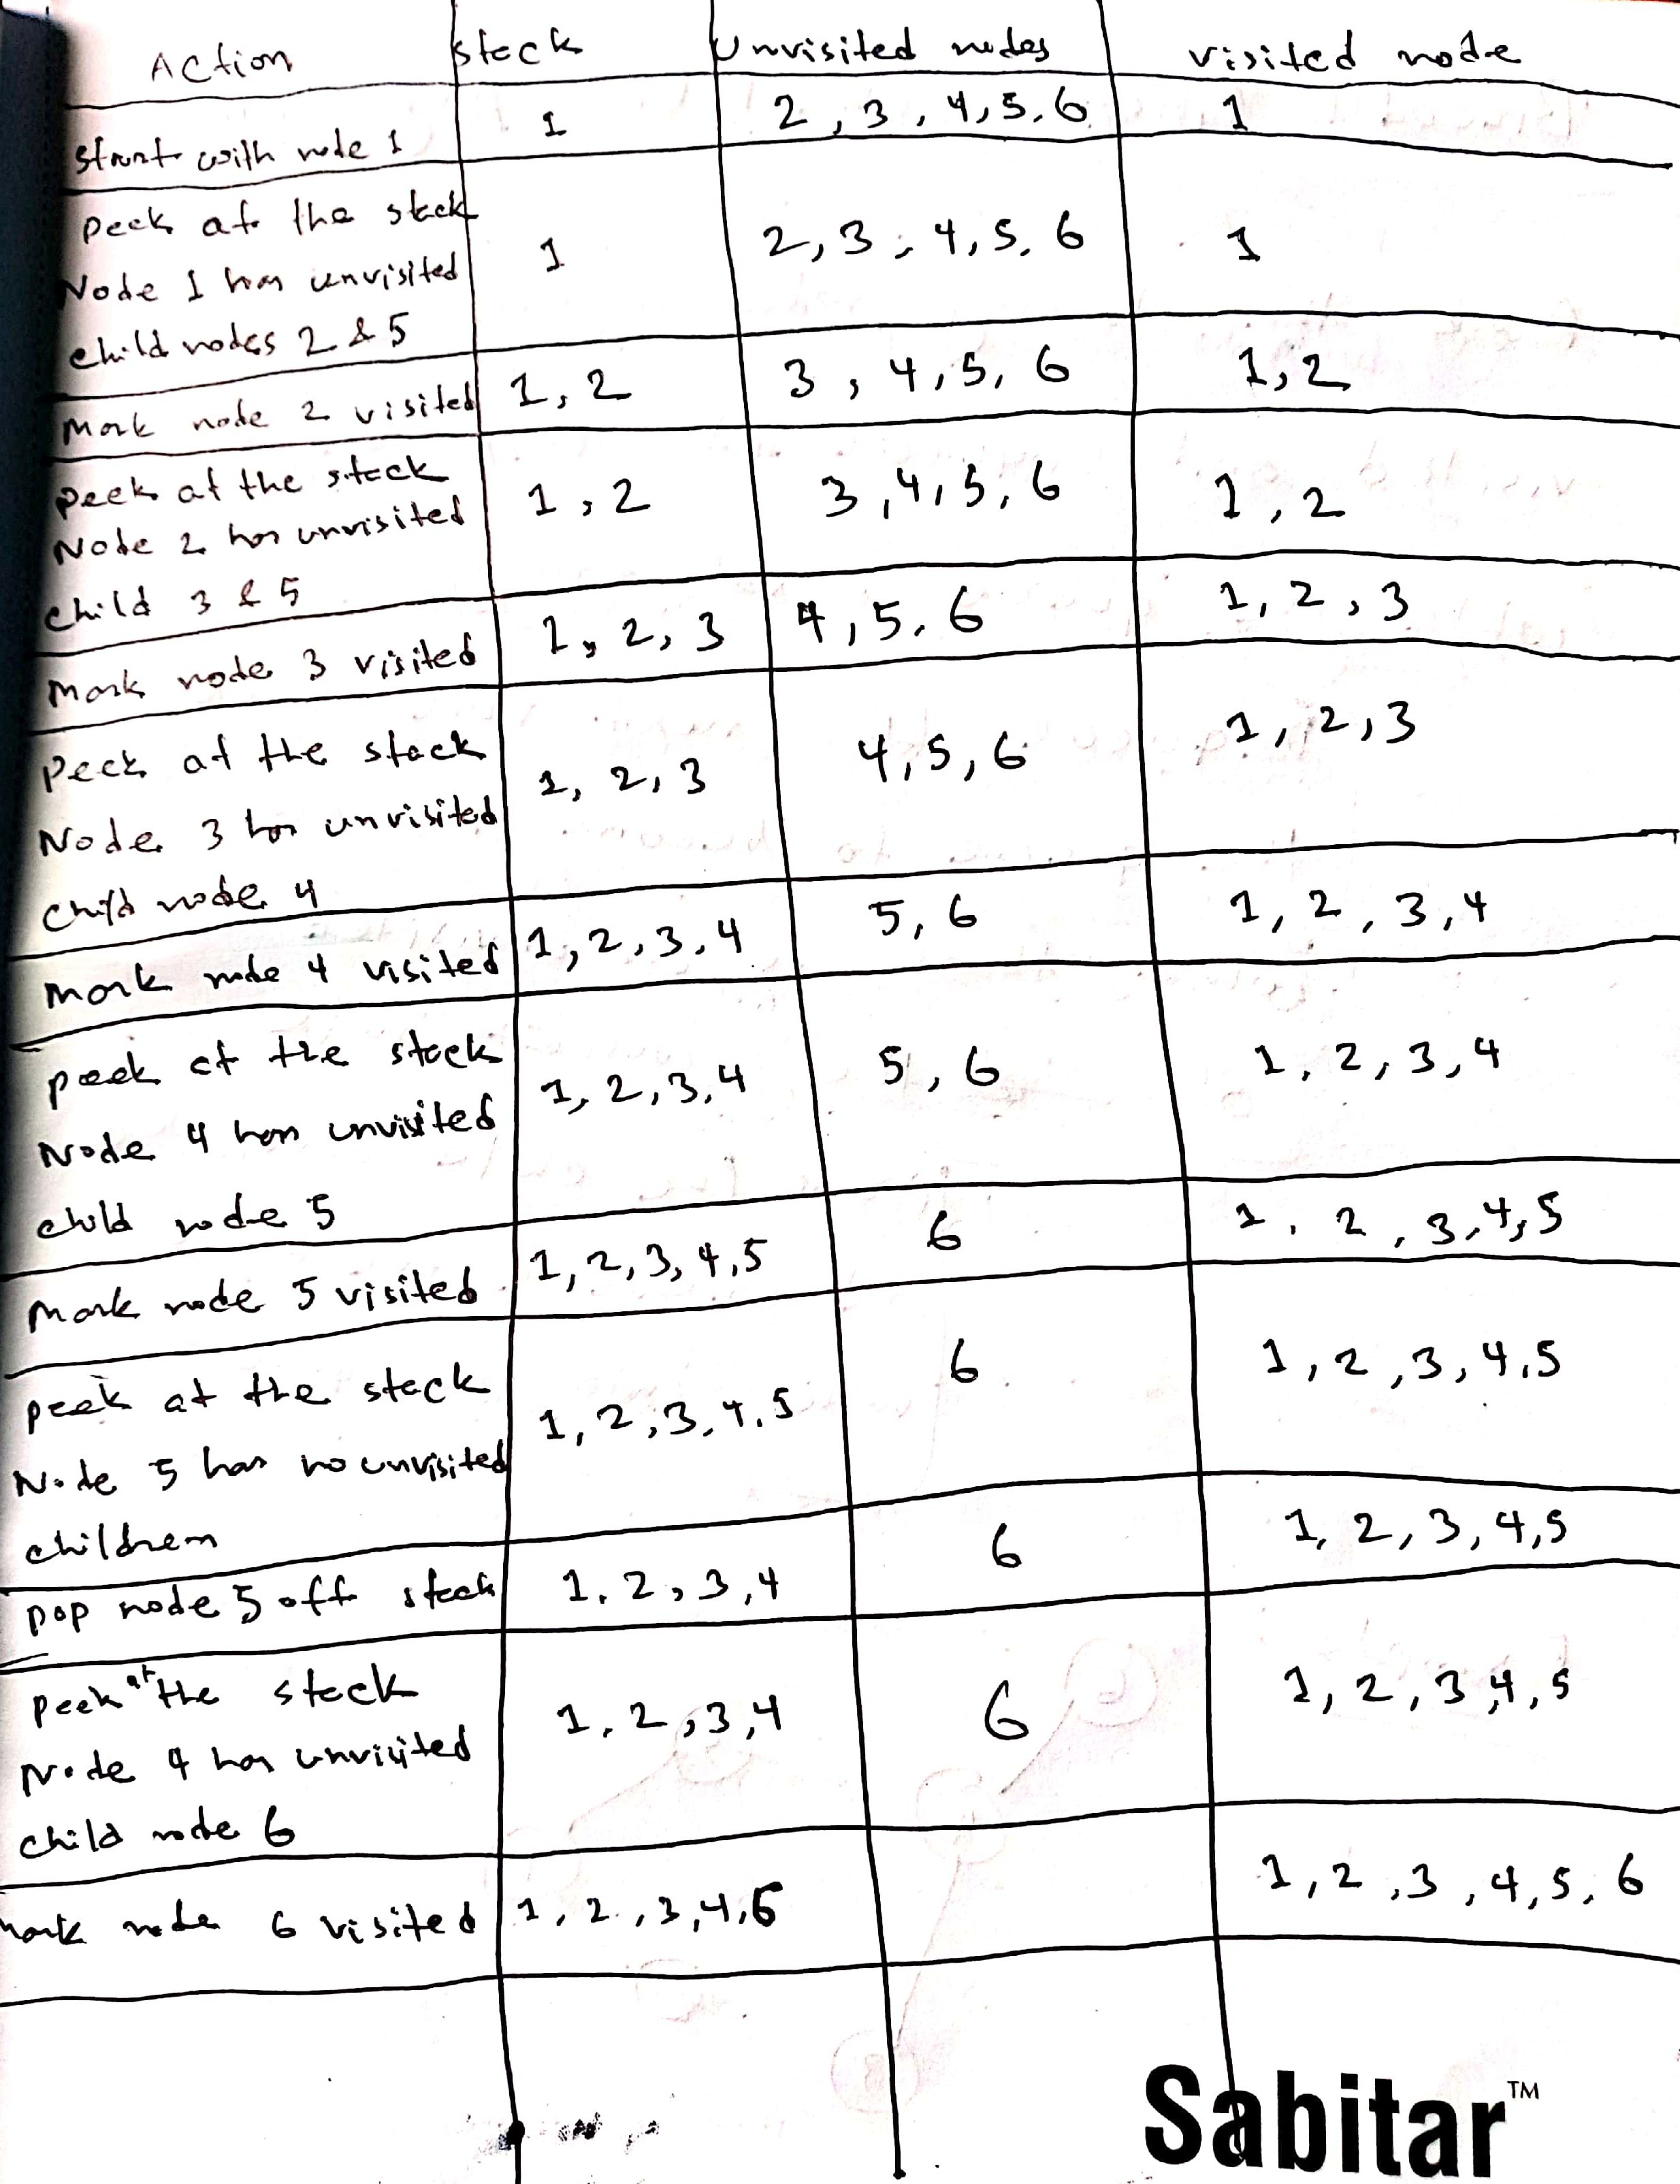 Action stack Unvisited nodes visited node
start with node 1 1 2, 3, 4, 5, 6 1
peek at the stack
Node 1 has unvisited 1 2, 3, 4, 5, 6 1
child nodes 2 & 5
mark node 2 visited 1, 2 3, 4, 5, 6 1, 2
peek at the stack
Node 2 has unvisited 1, 2 3, 4, 5, 6 1, 2
child 3 & 5
mark node 3 visited 1, 2, 3 4, 5, 6 1, 2, 3
peek at the stack
Node 3 has unvisited 1, 2, 3 4, 5, 6 1, 2, 3
child node 4
mark node 4 visited 1, 2, 3, 4 5, 6 1, 2, 3, 4
peek at the stack
Node 4 has unvisited 1, 2, 3, 4 5, 6 1, 2, 3, 4
child node 5
mark node 5 visited 1, 2, 3, 4, 5 6 1, 2, 3, 4, 5
peek at the stack
Node 5 has no unvisited 1, 2, 3, 4, 5 6 1, 2, 3, 4, 5
children
pop node 5 off stack 1, 2, 3, 4 6 1, 2, 3, 4, 5
peek at the stack
Node 4 has unvisited 1, 2, 3, 4 6 1, 2, 3, 4, 5
child node 6
mark node 6 visited 1, 2, 3, 4, 6 1, 2, 3, 4, 5, 6
Sabitar™